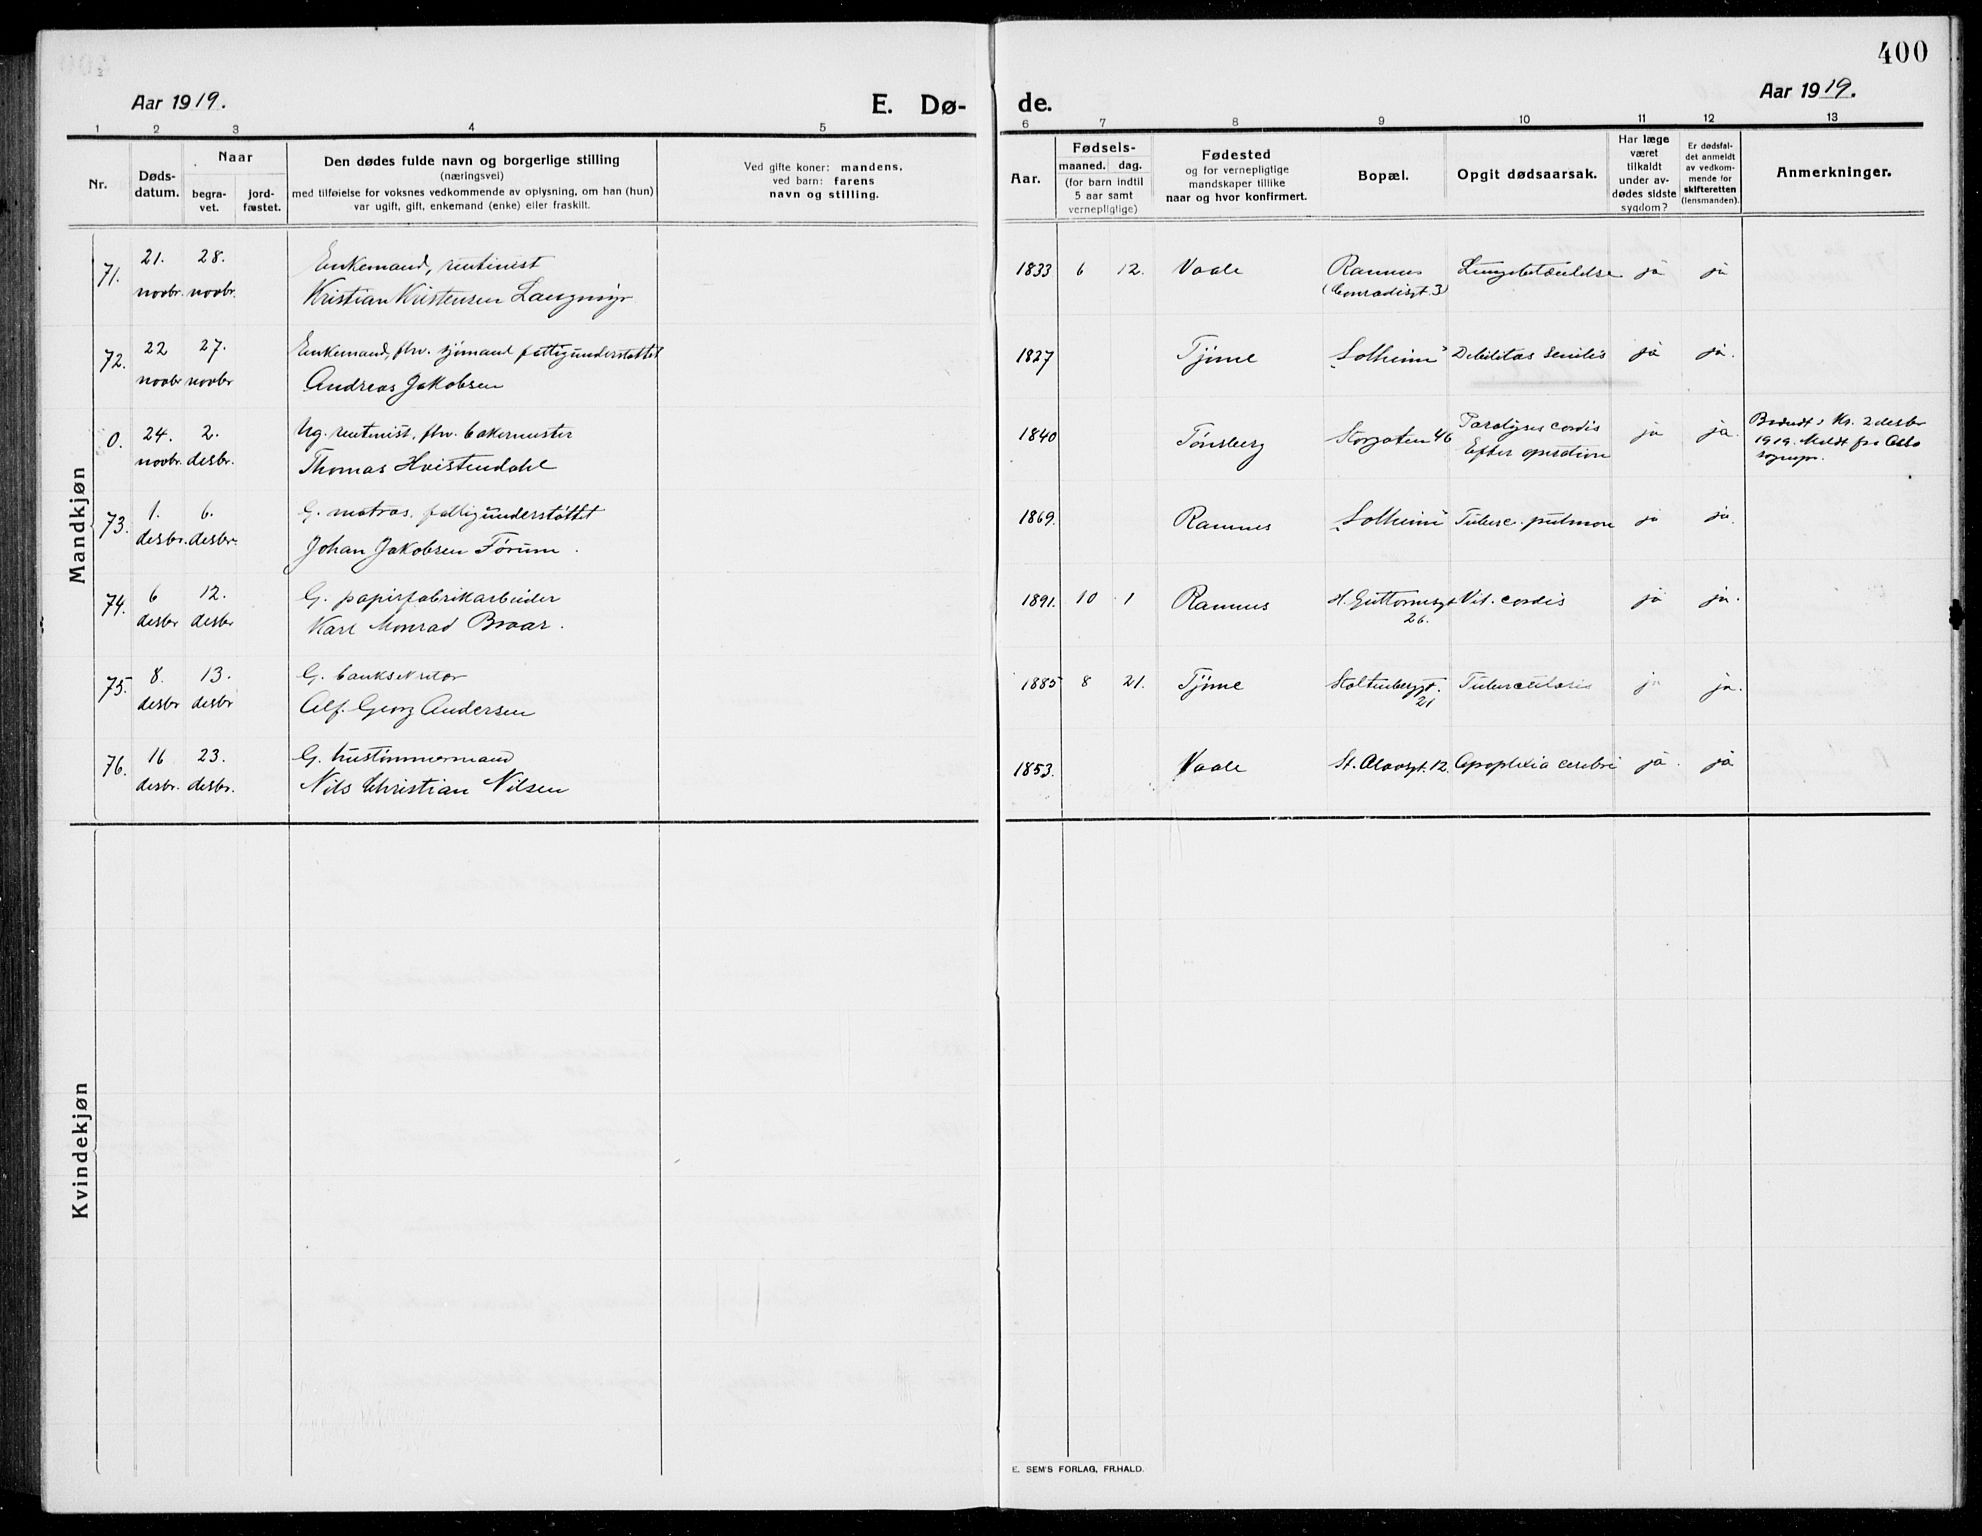 400
Aar 1919.
E. Dø-
de.
Aar 1919.
1 2 3 4 5 6 7 8 9 10 11 12 13
Nr.
Døds-
datum.
Naar
begra-
vet.
jord-
fæstet.
Den dødes fulde navn og borgerlige stilling
(næringsvei)
med tilføielse for voksnes vedkommende av oplysning, om han (hun)
var ugift, gift, enkemand (enke) eller fraskilt.
Ved gifte koner: mandens,
ved barn: farens
navn og stilling.
Aar.
Fødsels-
maaned. dag.
(for barn indtil
5 aar samt
vernepligtige)
Fødested
og for vernepligtige
mandskaper tillike
naar og hvor konfirmert.
Bopæl.
Opgit dødsaarsak.
Har læge
været
tilkaldt
under av-
dødes sidste
sygdom?
Er dødsfal-
det anmeldt
av vedkom-
mende for
skifteretten
(lensmanden).
Anmerkninger.
Mandkjøn
71. 21. 28. Enkemand, rentenist 1833 6 12. Vaale Ramnes Lungebetændelse ja ja
novbr. novbr. Kristian Kristensen Langmyr (Conradisgt. 3)
72. 22 27. Enkemand, fhv. sjømand fattigunderstøttet 1827 Tjøme "Solheim" Debilitas senilis ja ja.
novbr novbr Andreas Jakobsen
0. 24. 2. Ug. rentenist, fhv. bakermester 1840 Tønsberg Storgaten 46 Paralysis cordis ja ja. 2 desbr
novbr. desbr. Thomas Hvistendahl Efter operation 1919. Meldt fra
73. 1. 6. G. matros, fattigunderstøttet 1869. Ramnes "Solheim" Tuberc. pulmon ja ja.
desbr. desbr. Johan Jakobsen Førum.
74. 6 12. G. papirfabrikarbeider 1891. 10 1 Ramnes H. Guttormsgt Vit. cordis ja ja.
desbr desbr Karl Monrad Braar. 26.
75. 8. 13. G. banksekretær 1885 8 21. Tjøme Stoltenberggt. Tuberculosis ja ja.
desbr desbr Alf. Georg Andersen 21
76. 16 23. G. hustømmermand 1853. Vaale St. Olavsgt. 12. Apoplexia cerebri ja. ja
desbr. desbr. Nils Christian Nilsen
Kvindekjøn
E. SEM'S FORLAG, FR.HALD.